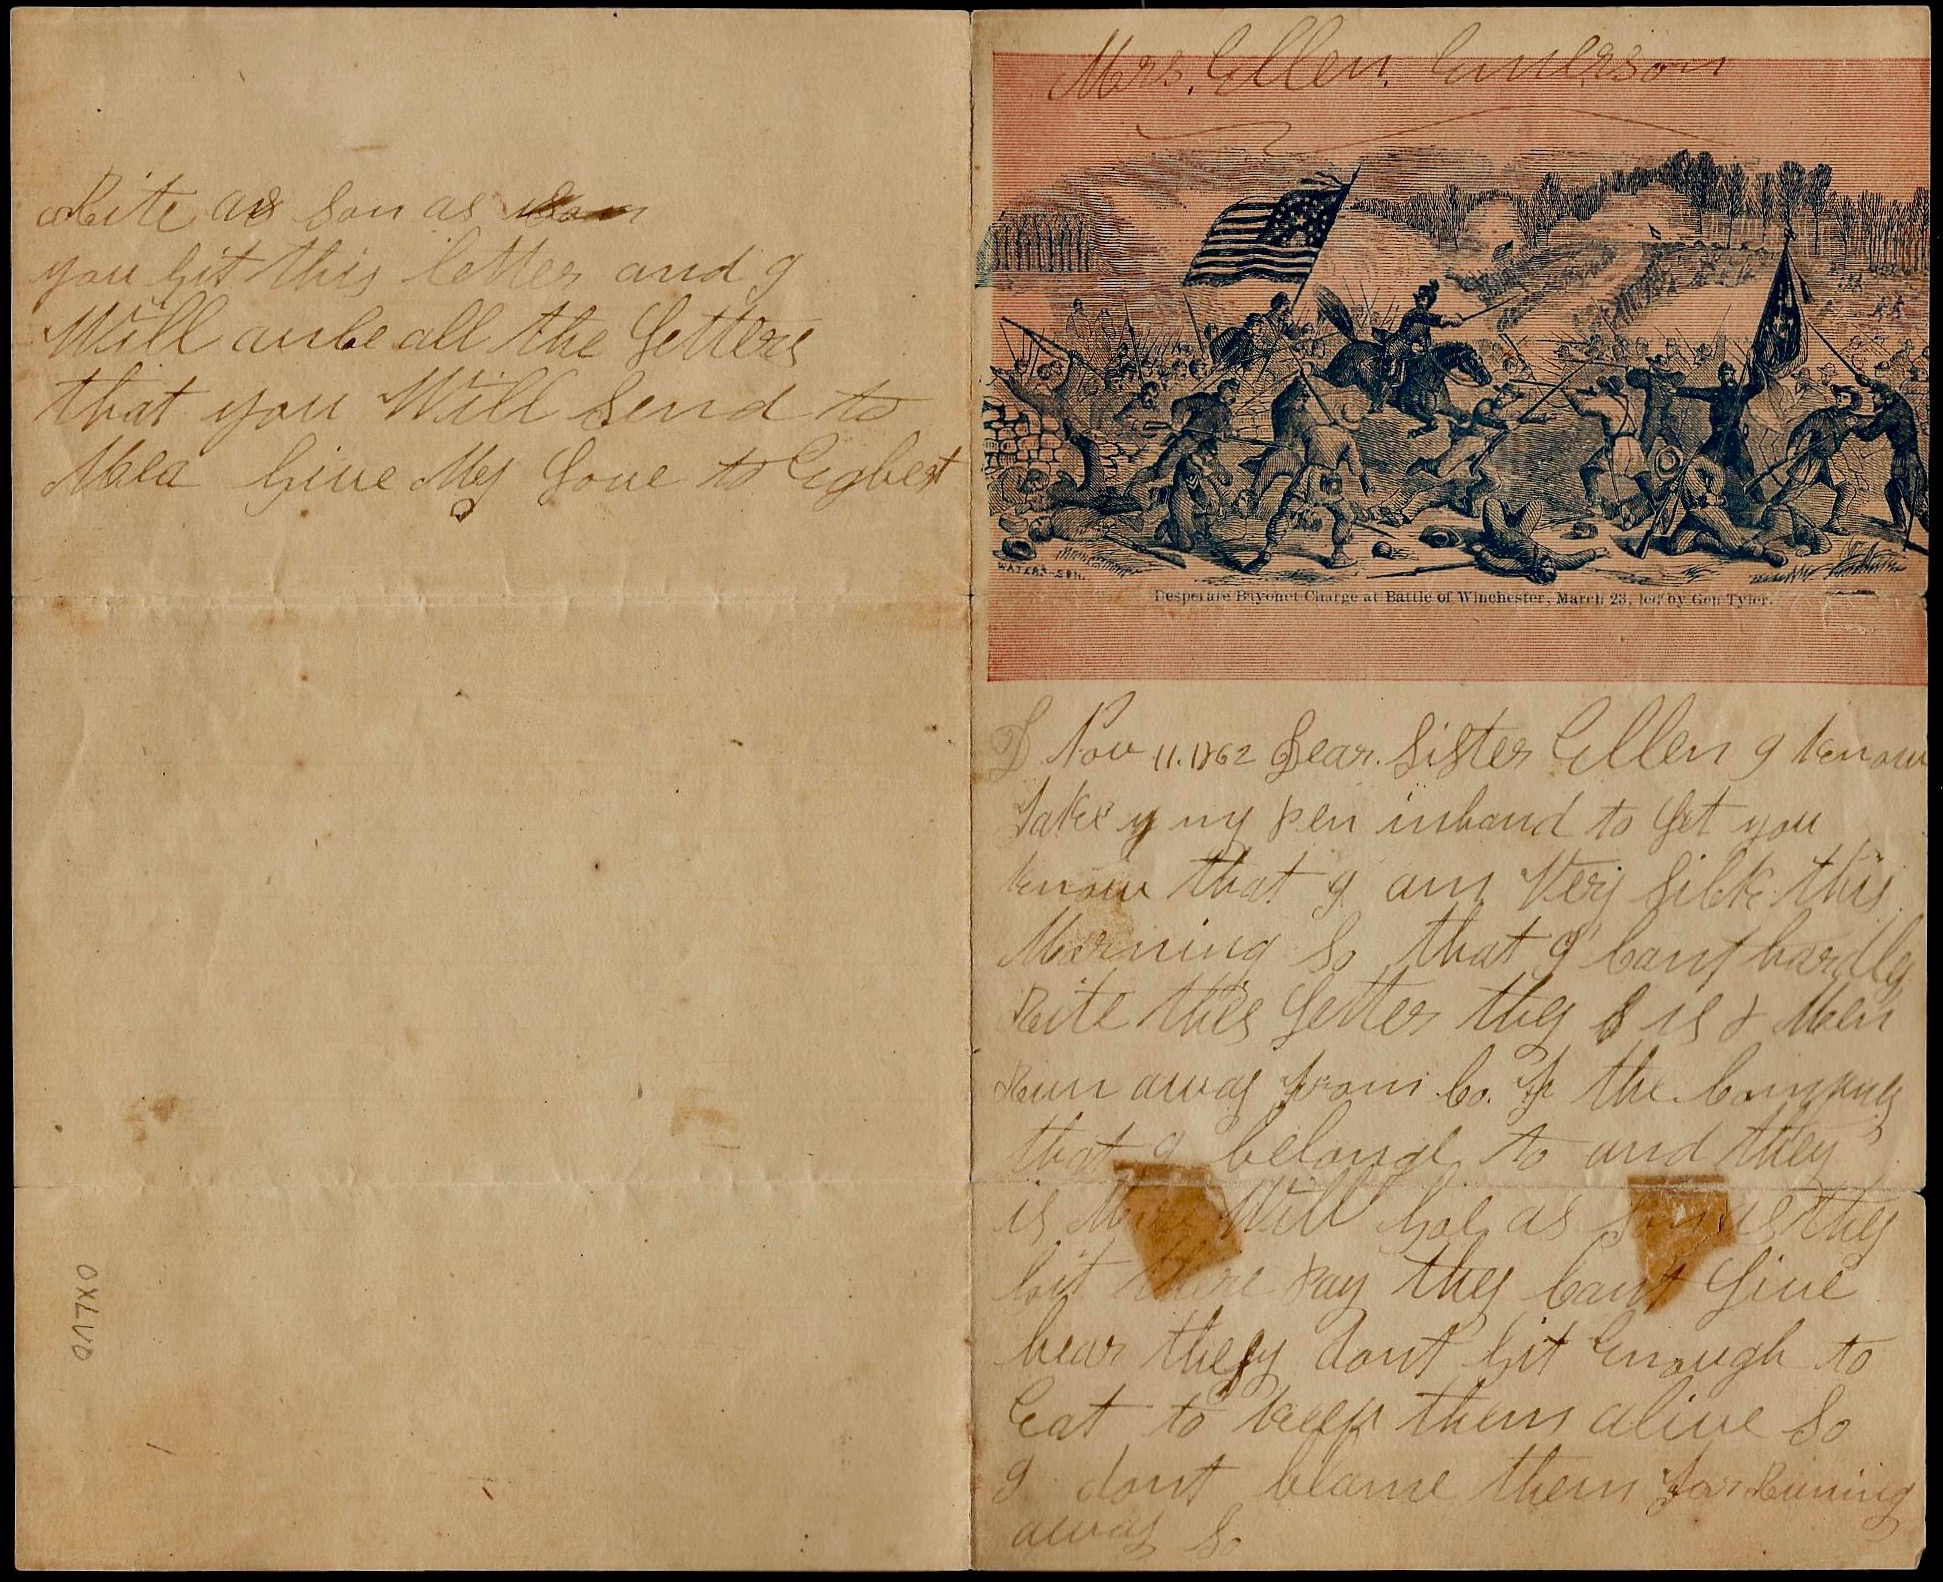 Mrs. Ellen. Emerson
WATERS - SON.
Desperate Bayonet Charge at Battle of Winchester, March 23, led by Gen Tyler.
D Nov 11. 1862 Dear. Sister Ellen I know
Take my pen inhand to Let you
know that I am Very Sick this
Morning So that I Cant hardly
Rite this Letter they is 8 Men
Run away from Co. the Company
that I belonge to and they
is More Will Goe as Son as they
Git there Pay they Cant Live
hear they dont Git Enough to
Eat to keep them alive So
I dont blame them for Runing
away So
Rite as Son as Son
you Git this letter and I
Will all the Letters
that you Will Send to
Mea Give My Love to Egbert
OXLVO